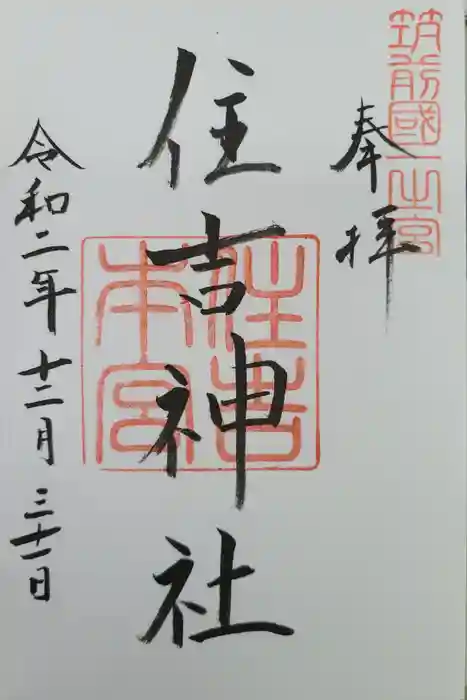 筑前國一之宮
奉拝
住吉神社
住吉
本宮
令和二年十二月三十一日